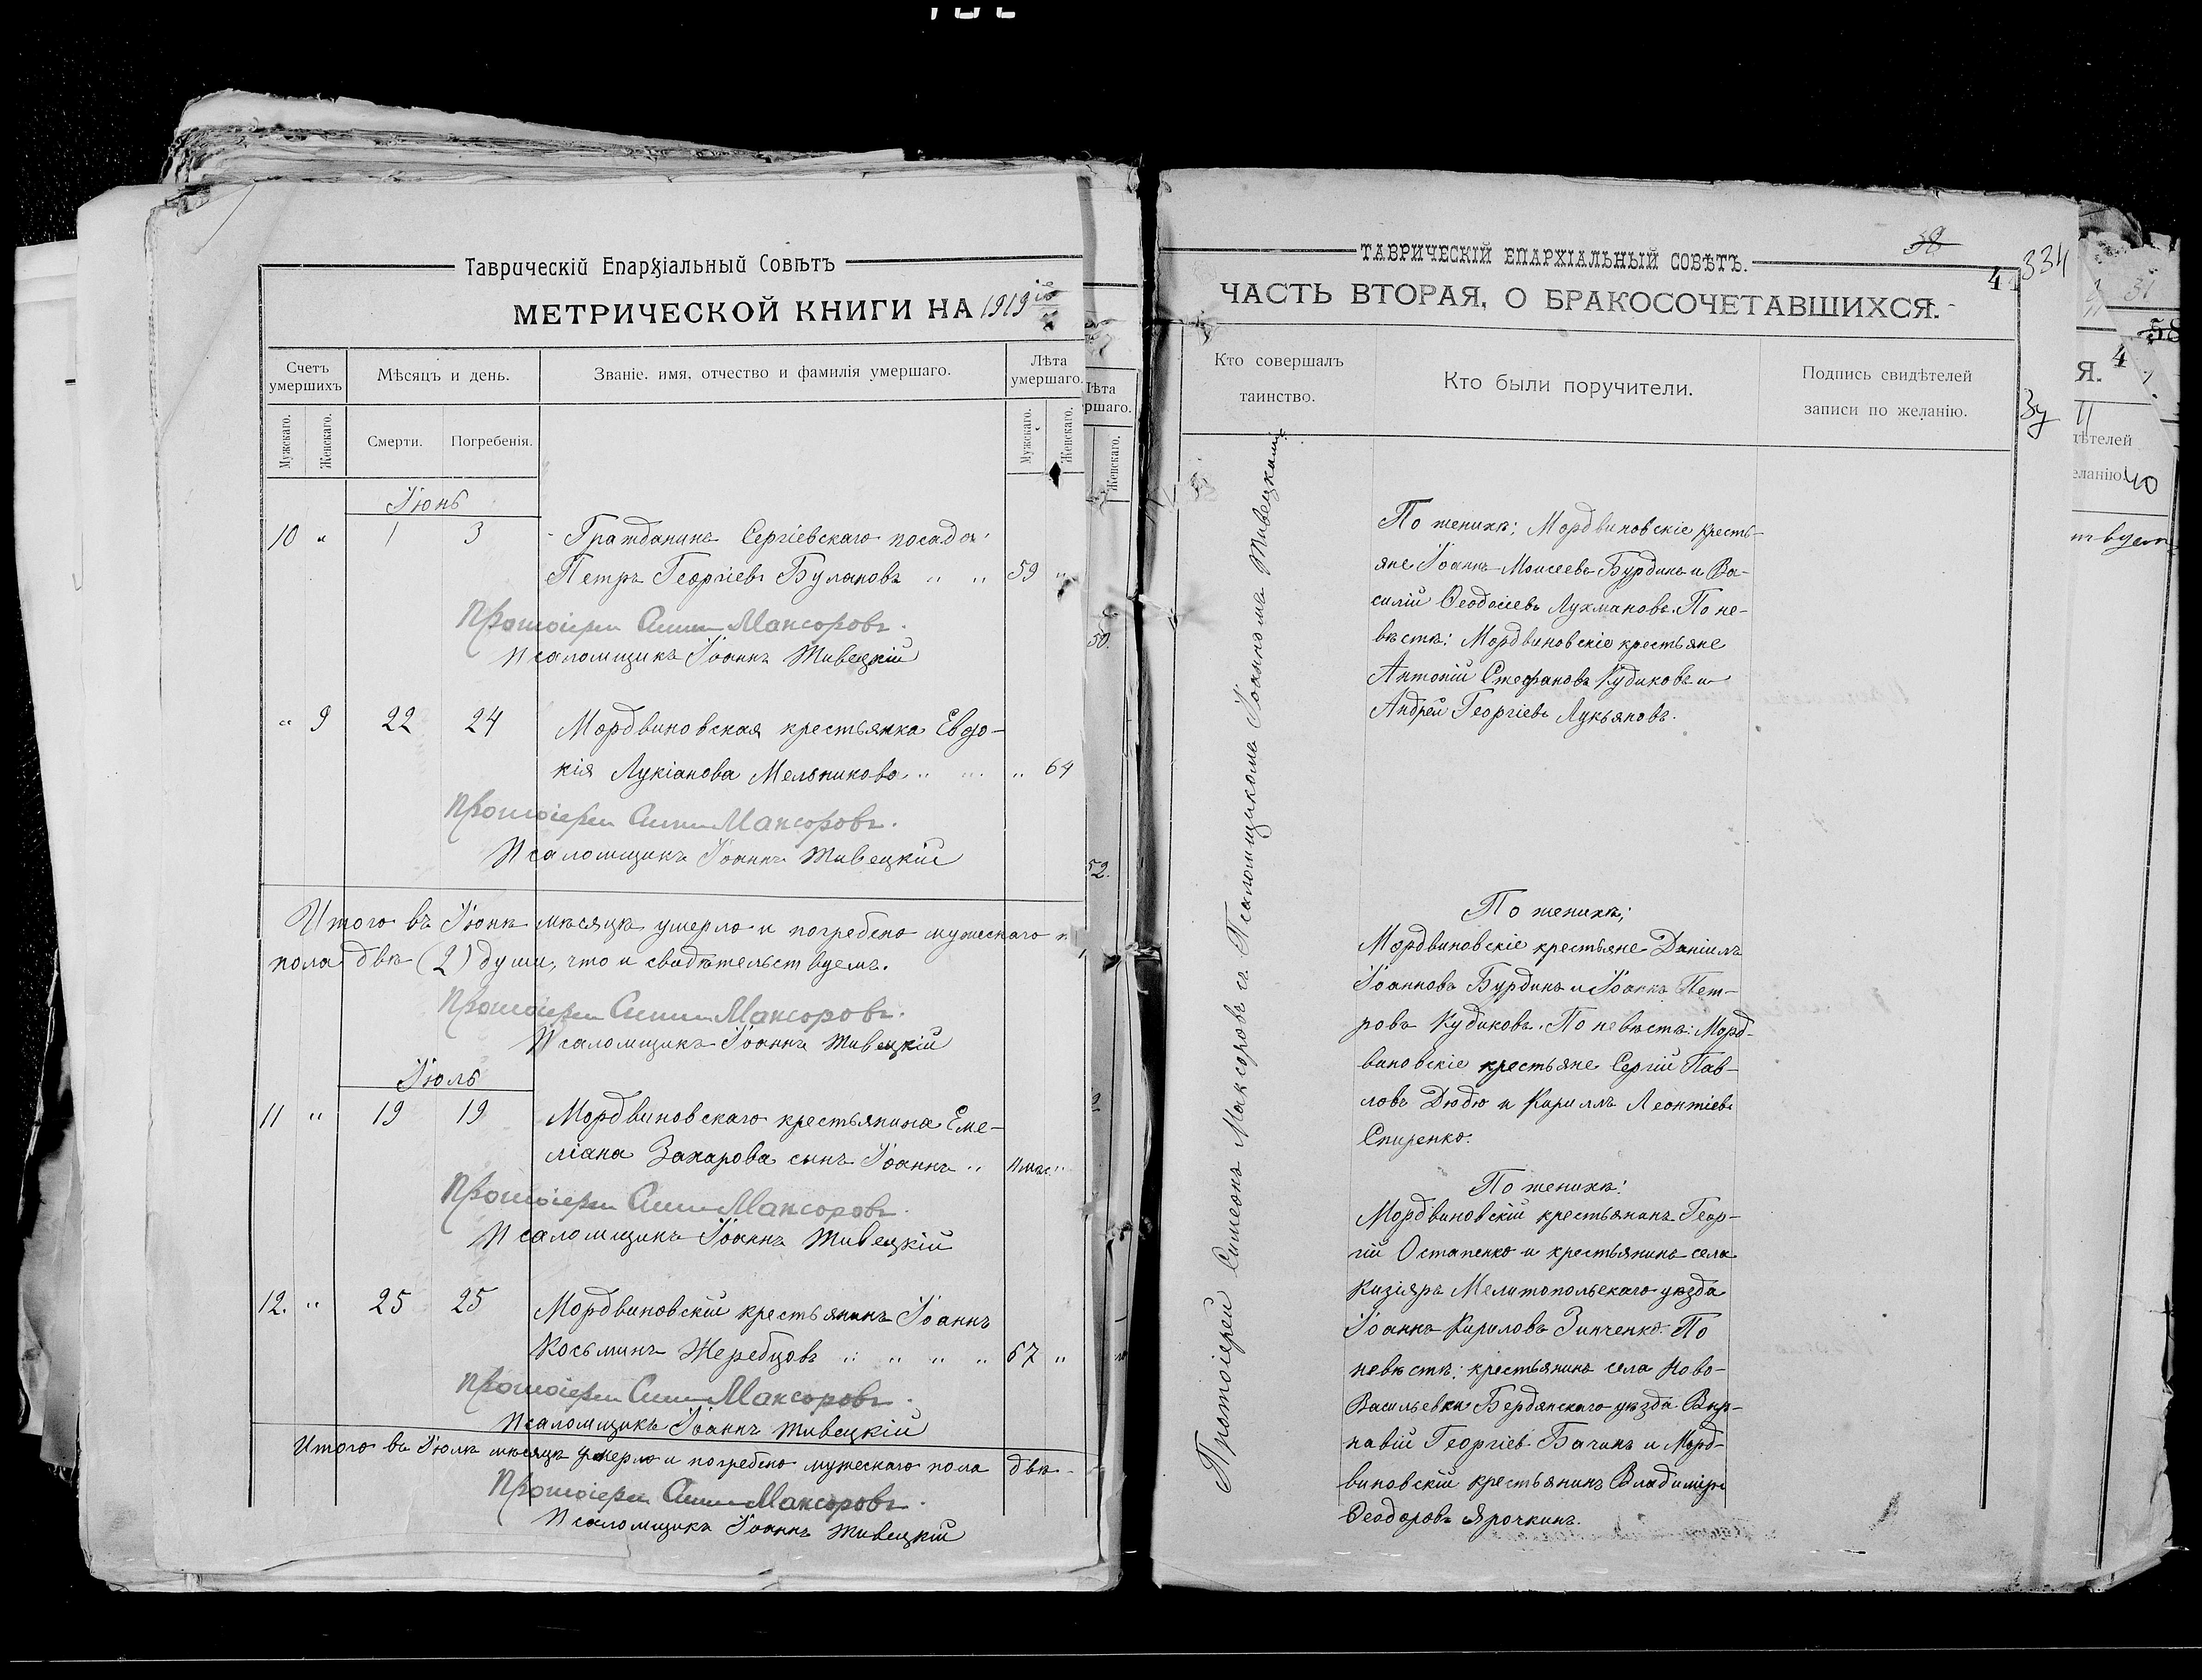 Таврическій Епархіальный Совѣтъ
МЕТРИЧЕСКОЙ КНИГИ НА 1919
Счетъ умершихъ
Мѣсяцъ и день.
Званіе, имя, отчество и фамилія умершаго.
Лѣта умершаго.
Мужскаго.
Женскаго.
Смерти.
Погребенія.
Мужскаго.
Женскаго.
Іюнь
10 " 1 3 Гражданинъ Сергіевскаго посада
Петръ Георгіевъ Булановъ " " 59 "
Протоіерей Симеонъ Максоровъ.
Псаломщикъ Іоаннъ Живецкій
" 9 22 24 Мордвиновская крестьянка Евдо-
кія Лукіанова Мельникова " " " 64
Протоіерей Симеонъ Максоровъ.
Псаломщикъ Іоаннъ Живецкій
Итого въ Іюнѣ мѣсяцѣ умерло и погребено мужескаго
пола двѣ (2) души, что и свидѣтельствуемъ.
Протоіерей Симеонъ Максоровъ.
Псаломщикъ Іоаннъ Живецкій
Іюль
11 " 19 19 Мордвиновскаго крестьянина Еме-
ліана Захарова сынъ Іоаннъ " 11 мѣс. "
Протоіерей Симеонъ Максоровъ.
Псаломщикъ Іоаннъ Живецкій
12. " 25 25 Мордвиновскій крестьянинъ Іоаннъ
Косьминъ Жеребцовъ " " " " 67 "
Протоіерей Симеонъ Максоровъ.
Псаломщикъ Іоаннъ Живецкій
Итого въ Іюлѣ мѣсяцѣ умерло и погребено мужескаго пола двѣ
Протоіерей Симеонъ Максоровъ.
Псаломщикъ Іоаннъ Живецкій
Лѣта
Женскаго.
50.
52.
ТАВРИЧЕСКІЙ ЕПАРХІАЛЬНЫЙ СОВѢТЪ.
334
ЧАСТЬ ВТОРАЯ, О БРАКОСОЧЕТАВШИХСЯ.
Кто совершалъ таинство.
Кто были поручители.
Подпись свидѣтелей записи по желанію.
Протоіерей Симеонъ Максоровъ съ Псаломщикомъ Іоанномъ Живецкимъ
По женихѣ: Мордвиновскіе кресть-
яне Іоаннъ Моисеевъ Бурдинъ и Ва-
силій Ѳеодосіевъ Лухмановъ. По не-
вѣстѣ: Мордвиновскіе крестьяне
Антоній Стефановъ Кудиковъ и
Андрей Георгіевъ Лукьяновъ.
По женихѣ:
Мордвиновскіе крестьяне Даніилъ
Іоанновъ Бурдинъ и Іоаннъ Пет-
ровъ Кудиковъ. По невѣстѣ: Морд-
виновскіе крестьяне Сергій Пав-
ловъ Дюдю и Кириллъ Леонтіевъ
Спиренко.
По женихѣ:
Мордвиновскій крестьянинъ Геор-
гій Остапенко и крестьянинъ села
Кизіяръ Мелитопольскаго уѣзда
Іоаннъ Кириловъ Зинченко. По
невѣстѣ: крестьянинъ села Ново-
Васильевки Бердянскаго уѣзда
навій Георгіевъ Бачинъ и Морд-
виновскій крестьянинъ Владиміръ
Ѳеодоровъ Ярочкинъ.
40